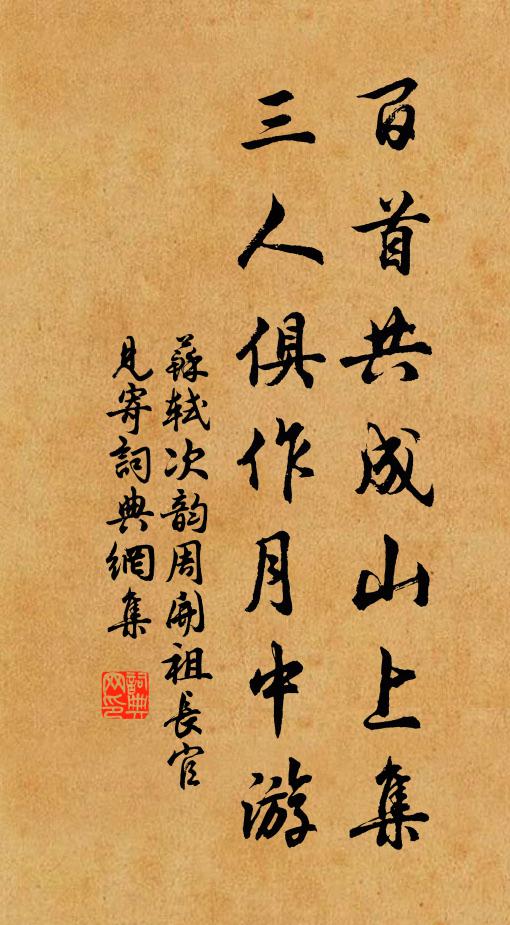 百首共成山上集
三人俱作月中游
蘇軾次韵周開祖長官
見寄詞典網集
詞典
网印